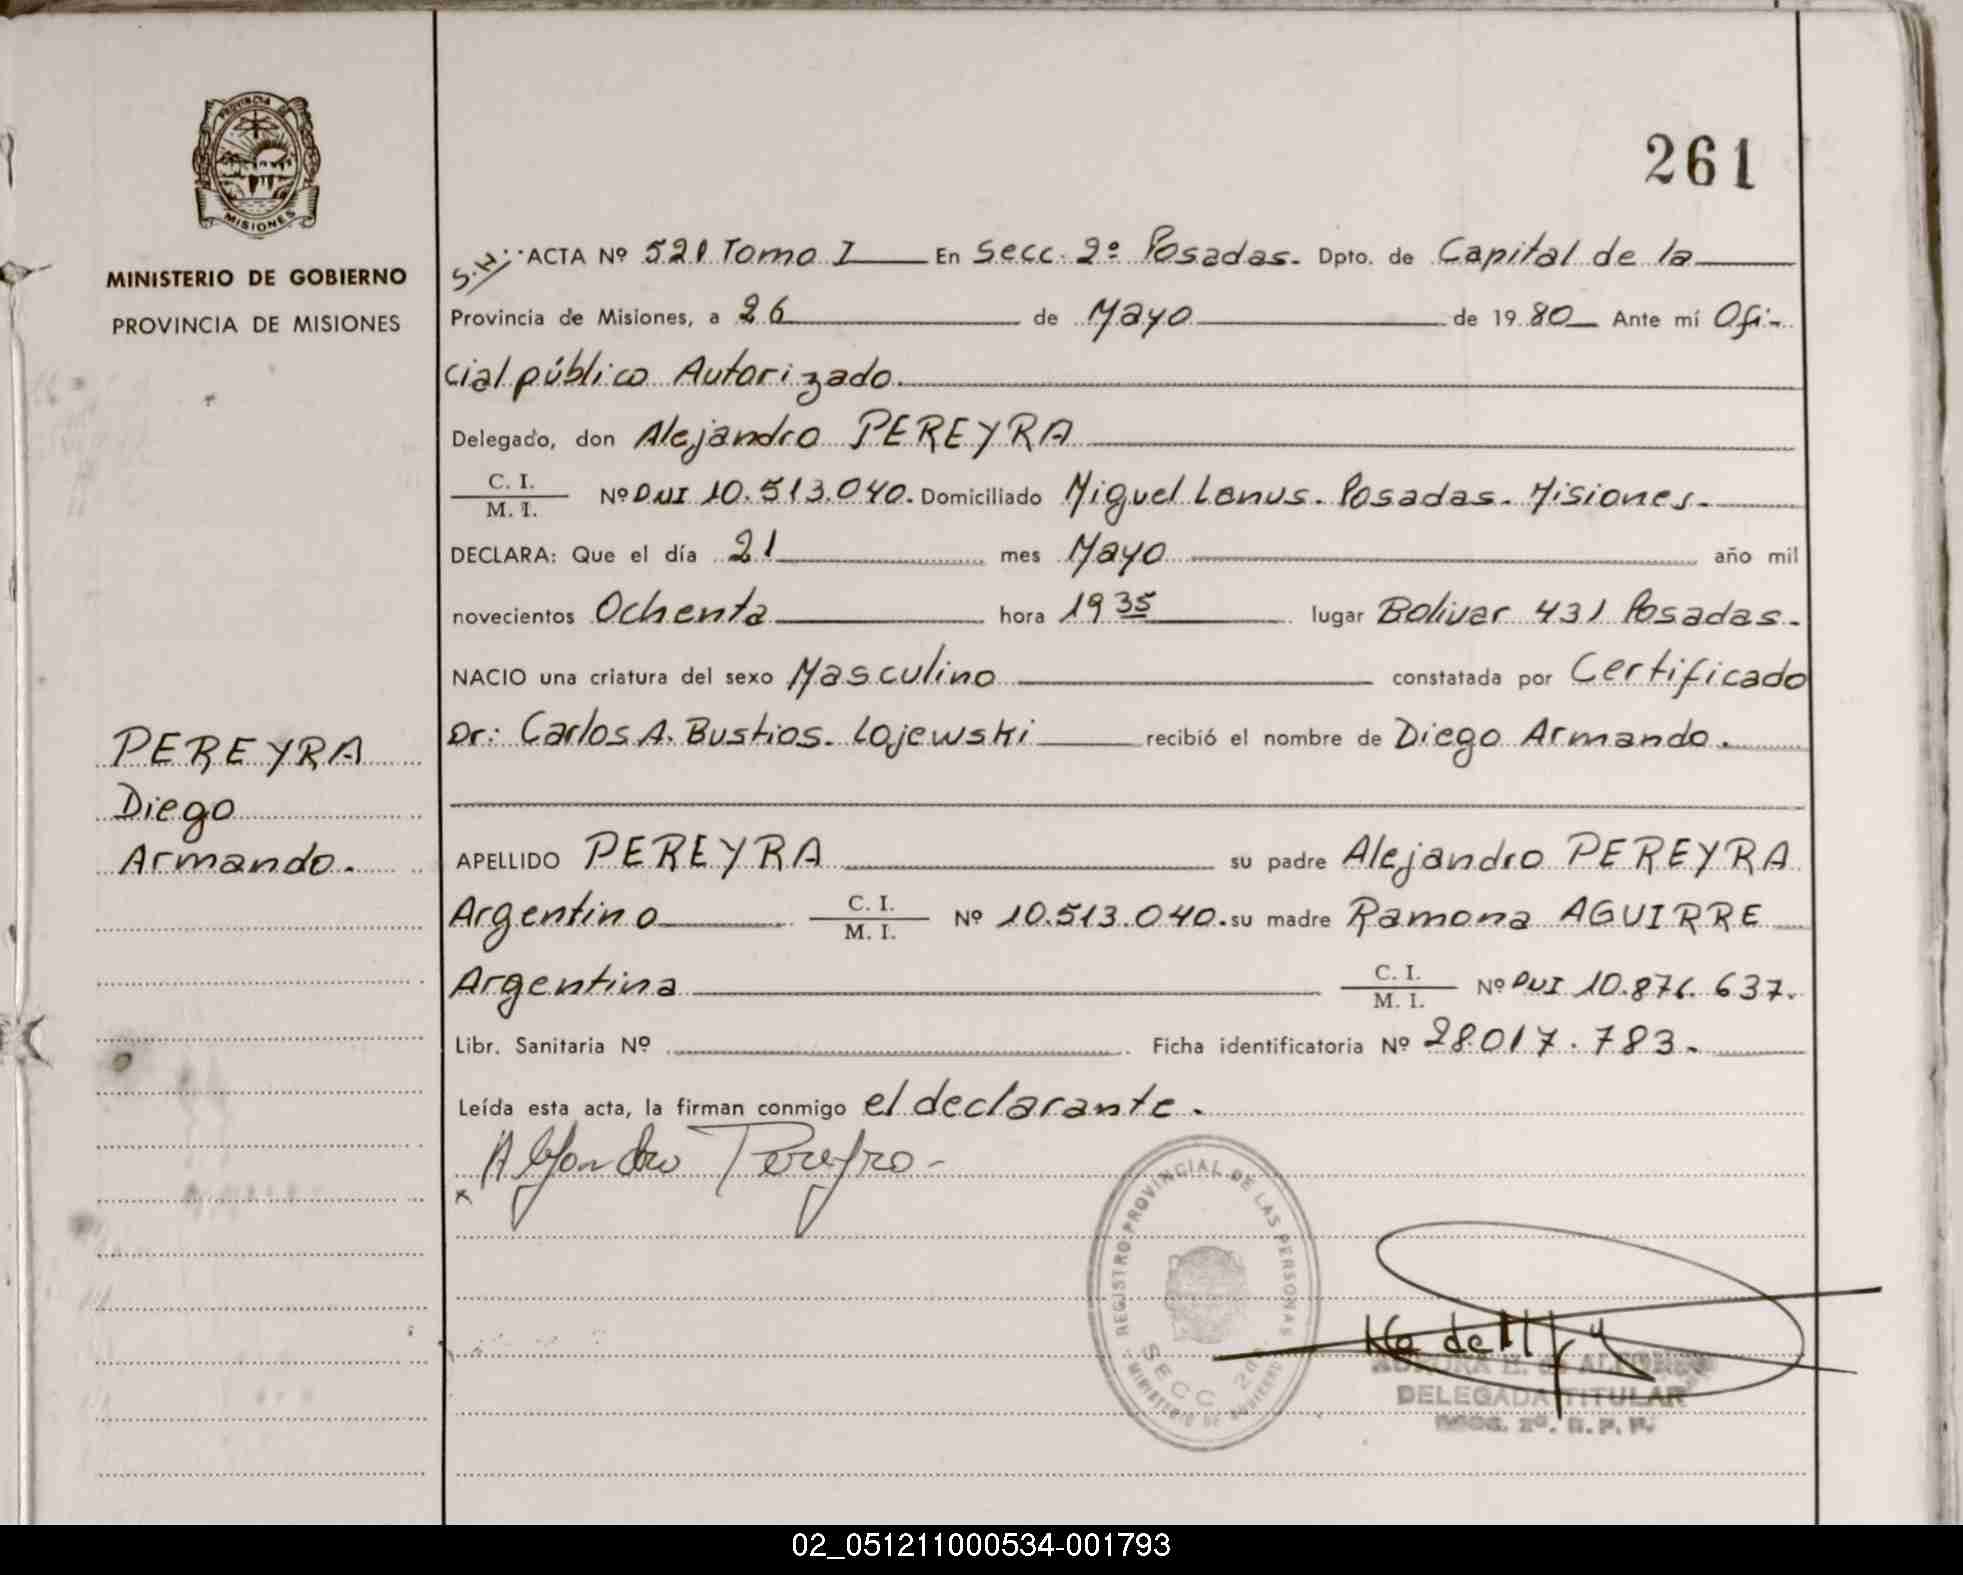 261
PROVINCIA DE
MISIONES
MINISTERIO DE GOBIERNO
PROVINCIA DE MISIONES
ACTA Nº 521 Tomo I En Secc. 2º Posadas. Dpto. de Capital de la
Provincia de Misiones, a 26 de Mayo de 1980 Ante mí Ofi-
cial público Autorizado.
Delegado, don Alejandro PEREYRA
C. I.
M. I. Nº DNI 10.513.040. Domiciliado Miguel Lanus. Posadas. Misiones.
DECLARA: Que el día 21 mes Mayo año mil
novecientos Ochenta hora 19 35 lugar Bolivar 431 Posadas.
NACIO una criatura del sexo Masculino constatada por Certificado
Dr: Carlos A. Bustios. Lojewski recibió el nombre de Diego Armando.
PEREYRA
Diego
Armando.
APELLIDO PEREYRA su padre Alejandro PEREYRA
Argentino C. I.
M. I. Nº 10.513.040. su madre Ramona AGUIRRE
Argentina C. I.
M. I. Nº DNI 10.876.637.
Libr. Sanitaria Nº Ficha identificatoria Nº 28.017.783.
Leída esta acta, la firman conmigo el declarante.
Alejandro Pereyra
REGISTRO PROVINCIAL DE LAS PERSONAS
SECC 2da
MINISTERIO DE GOBIERNO
DELEGADA TITULAR
02_051211000534-001793